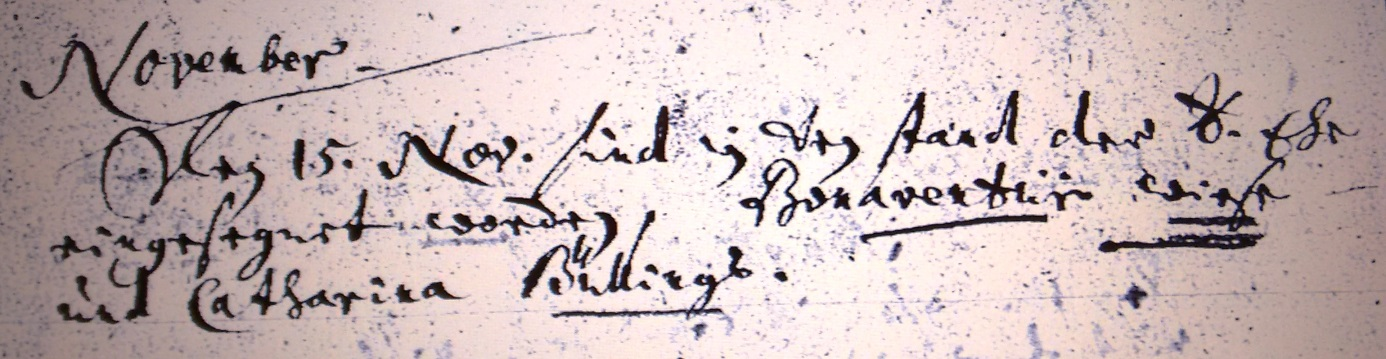 November.
Den 15. Nov. sind in den stand der H. Ehe
eingesegnet worden, Bonaventur Wiese
und Catharina Büllings.